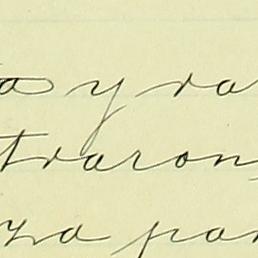 as y va
traron,
za par